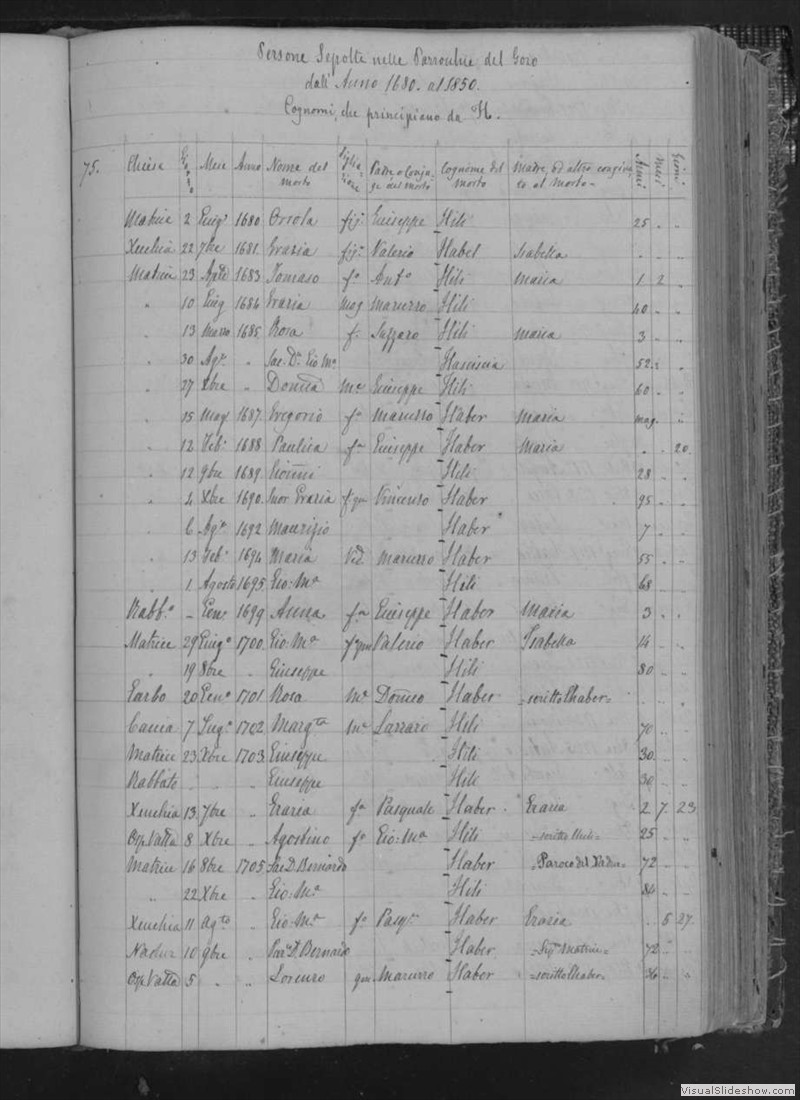 Persone Sepolte nelle Parrochie del Gozo
dall' Anno 1680. al 1850.
Cognomi, che principiano da H.
75. Chiesa Mese Anno Nome del morto Padre o Conjuge del morto Cognome del morto Madre, od altro congiunto al morto Anni Mesi Giorni
Matrice 2 Giug° 1680 Orsola fig: Giuseppe Hili 25 " "
Xeuchia 22 7bre 1681 Grazia fig: Valerio Habel Isabella " " "
Matrice 23 Aple 1683 Tomaso fo Anto Hili Maria 1 2 "
" 10 Giug 1684 Grazia mog Marizzo Hili 40 " "
" 13 Marzo 1685 Rosa f: Hili Maria 3 " "
" 30 Ago " Sac. Dn Gio Ma 52 " "
" 27 Xbre " Domca Me Giuseppe Hili 60 " "
" 15 Mag 1687 Gregorio fo Haber Maria mag. " "
" 12 Feb: 1688 Paulica fa Giuseppe Haber Maria " " 20
" 12 9bre 1689 Gioanni Hili 28 " "
" 4 Xbre 1690 Suor Grazia fa qm Vincenzo Haber 95 " "
" 6 Ago 1692 Maurizio Haber 7 " "
" 13 Feb: 1694 Maria Ved Haber 55 " "
" 1 Agosto 1695 Gio: Ma Hili 68 " "
Rabb.o - Gen: 1699 Anna fa Giuseppe Haber Maria 3 " "
Matrice 29 Giugo 1700 Gio: Ma f qm Valerio Haber Isabella 14 " "
" 19 8bre " Giuseppe Hili 80 " "
Garbo 20 Geno 1701 Rosa Me Domco Haber =scritto Chaber= " " "
Caccia 7 1702 Margta Me Lazzaro Hili 70 " "
Matrice 23 Xbre 1703 Giuseppe Hili 30 " "
Rabbato " " " Giuseppe Hili 30 " "
Xeuchia 13 7bre " Grazia fa Pasquale Haber Grazia 2 7 23
Osp. Valta 8 Xbre " Agostino fo Gio: Ma Hili =scritto Chili= 25 " "
Matrice 16 8bre 1705 Sac. D. Bernardo Haber =Paroco del Nadur= 72 " "
" 22 Xbre " Gio: Ma Hili 84 " "
Xeuchia 11 Agto " Gio: Ma fo Pasqe Haber Grazia " 6 27
Nadur 10 9bre " Paro D. Bernardo Haber 72 " "
Osp. Valta 5 " " Lorenzo qm Haber =scritto Chaber= 36 " "
VisualSlideshow.com